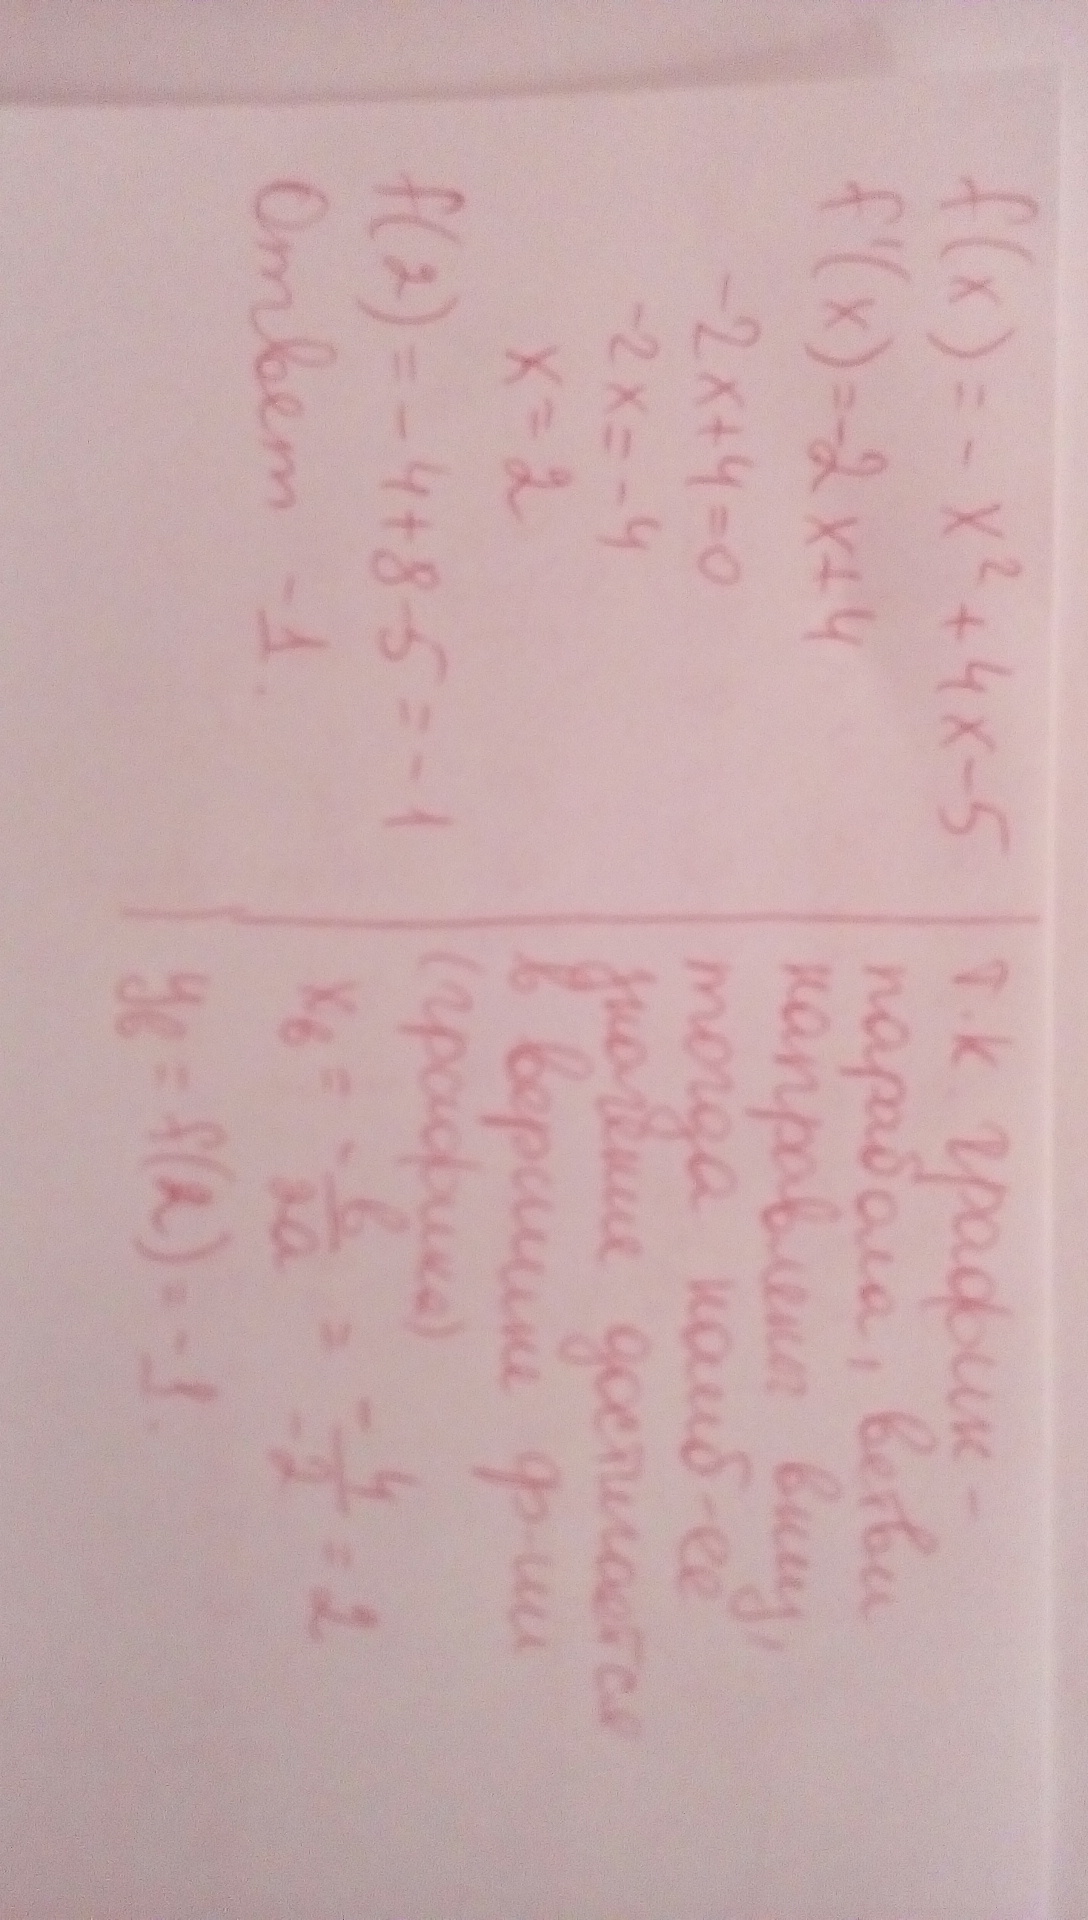 f(x) = - x² + 4x - 5
f'(x) = -2x+4
-2x+4=0
-2x=-4
x=2
f(2) = -4+8-5 = -1
Ответ -1.
т.к. график -
парабола, ветви
направлены вниз,
тогда наиб-ее
значение достигается
в вершине ф-ии
(графика)
xв = - b/2a = - 4/-2 = 2
yв = f(2) = -1.